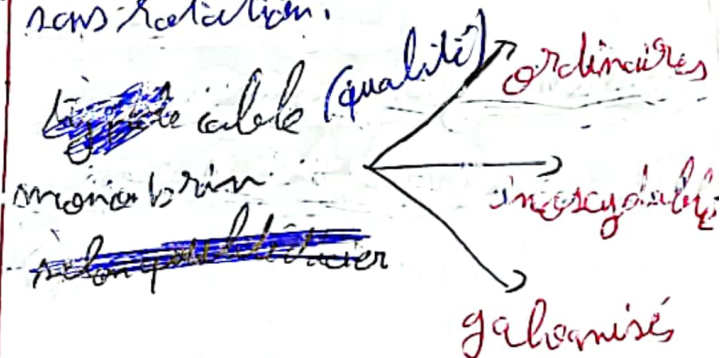 sans rotation.
câble (qualité)
monobrin
ordinaires
inoxydable
galvanisés